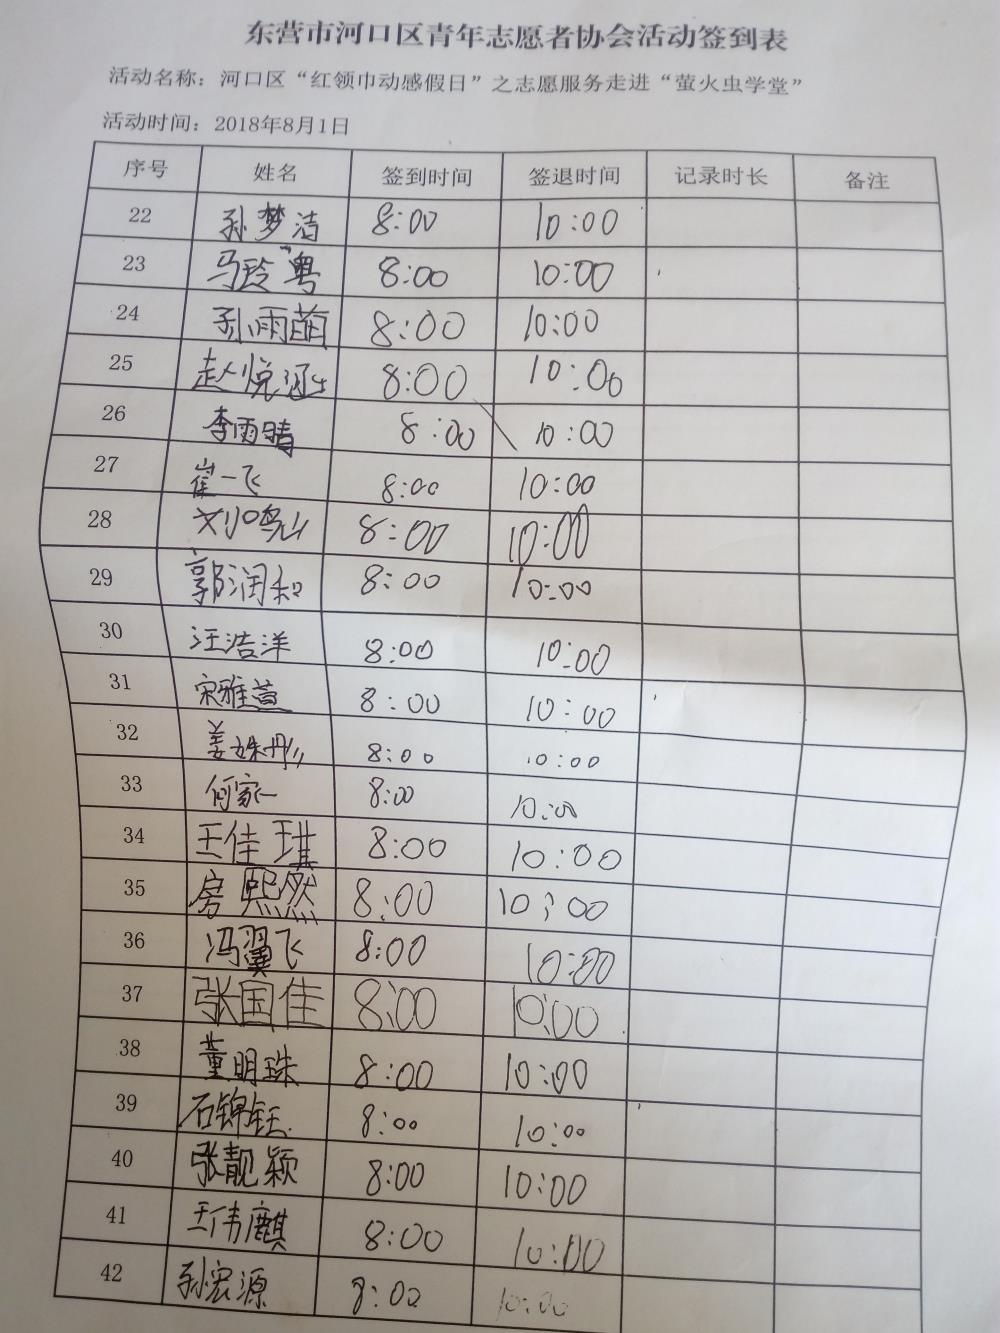 东营市河口区青年志愿者协会活动签到表
活动名称：河口区“红领巾动感假日”之志愿服务走进“萤火虫学堂”
活动时间：2018年8月1日
序号 姓名 签到时间 签退时间 记录时长 备注
22 孙梦洁 8:00 10:00
23 马玲粤 8:00 10:00
24 孙雨萌 8:00 10:00
25 赵悦涵 8:00 10:00
26 李雨晴 8:00 10:00
27 崔一飞 8:00 10:00
28 刘鸣山 8:00 10:00
29 郭润和 8:00 10:00
30 汪浩洋 8:00 10:00
31 宋雅萱 8:00 10:00
32 姜姝彤 8:00 10:00
33 何家一 8:00 10:00
34 王佳琪 8:00 10:00
35 房熙然 8:00 10:00
36 冯翼飞 8:00 10:00
37 张国佳 8:00 10:00
38 董明珠 8:00 10:00
39 石锦钰 8:00 10:00
40 张靓颖 8:00 10:00
41 王伟麒 8:00 10:00
42 孙宏源 8:00 10:00